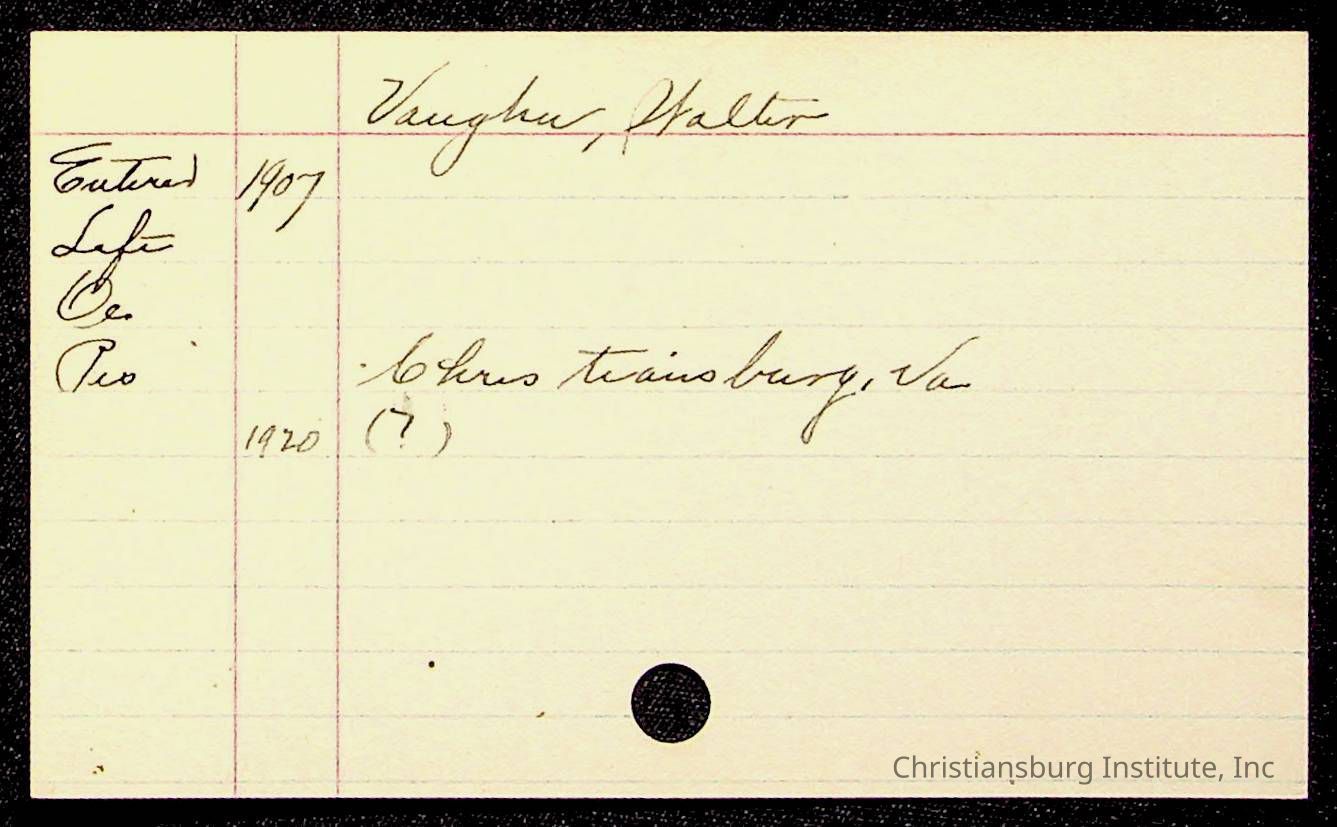 Vaughn, Walter
Entered 1907
Left
Oc.
Res Christiansburg, Va.
1920 (?)
Christiansburg Institute, Inc